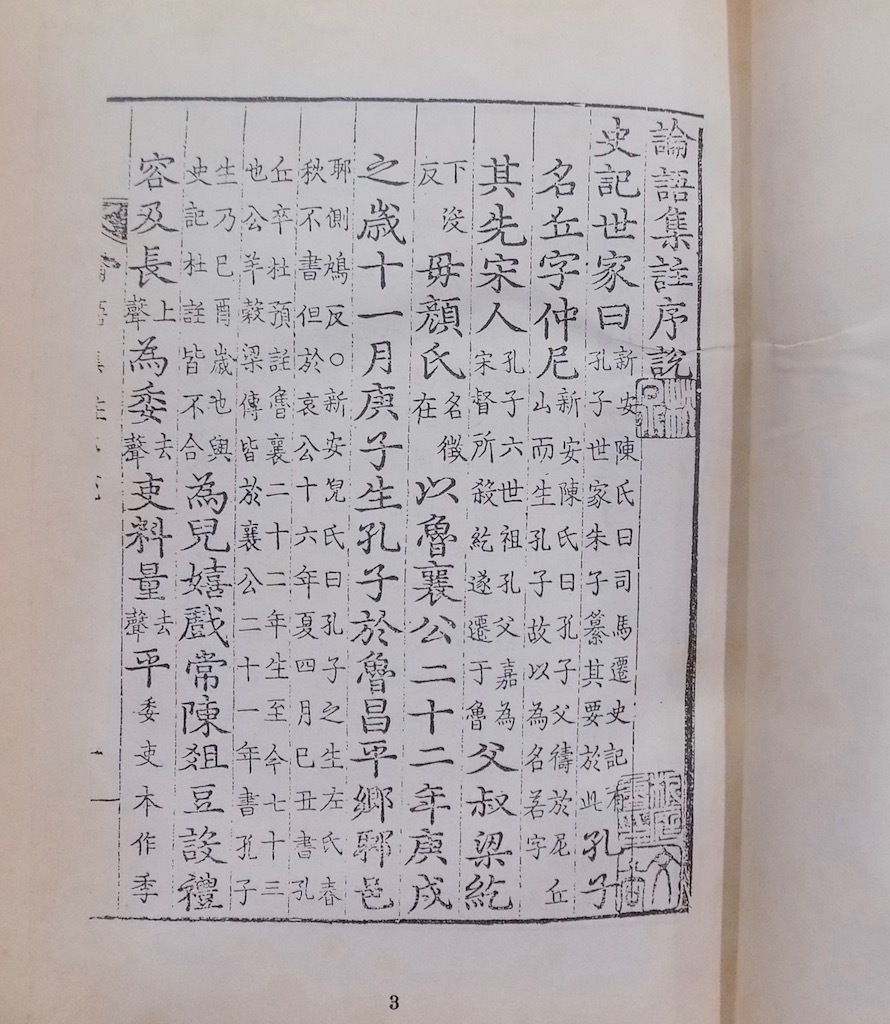 論語集註序說
史記世家曰新安陳氏曰司馬遷史記有孔子世家朱子纂其要於此孔子
名丘字仲尼新安陳氏曰孔子父禱於尼丘山而生孔子故以為名若字
其先宋人孔子六世祖孔父嘉為宋督所殺紇遂遷于魯父叔梁紇
下沒反毋顏氏名徵在以魯襄公二十二年庚戌
之歲十一月庚子生孔子於魯昌平鄉郰邑
郰側鳩反○新安倪氏曰孔子之生左氏春秋不書但於哀公十六年夏四月己丑書孔
丘卒杜預註魯襄二十二年生至今七十三也公羊穀梁傳皆於襄公二十一年書孔子
生乃己酉歲也與史記杜註皆不合為兒嬉戲常陳俎豆設禮
容及長上聲為委去聲吏料量去聲平委吏本作季
一
3